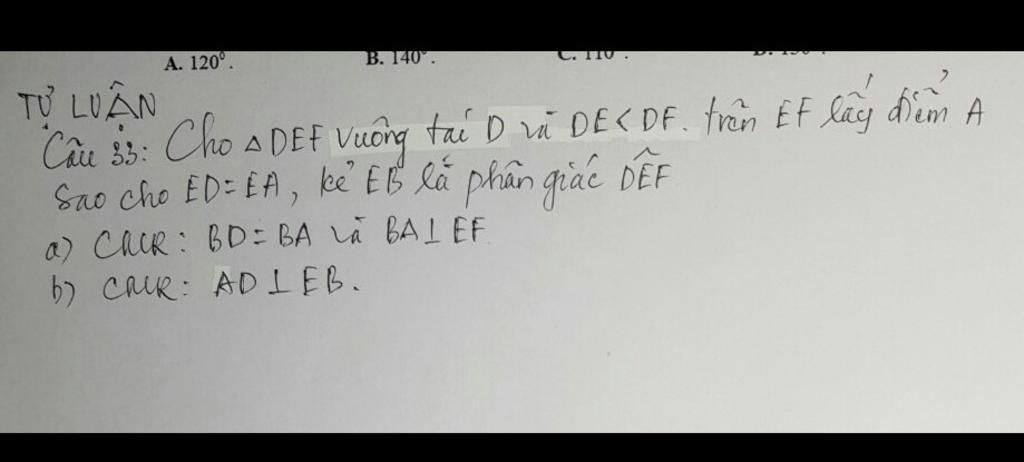 A. 120⁰. B. 140⁰. C. 110⁰.
TỰ LUẬN
Câu 33: Cho △DEF vuông tại D và DE<DF. trên EF lấy điểm A
Sao cho ED=EA, kẻ EB là phân giác DÊF
a) CMR: BD=BA và BA⊥EF
b) CMR: AD⊥EB.